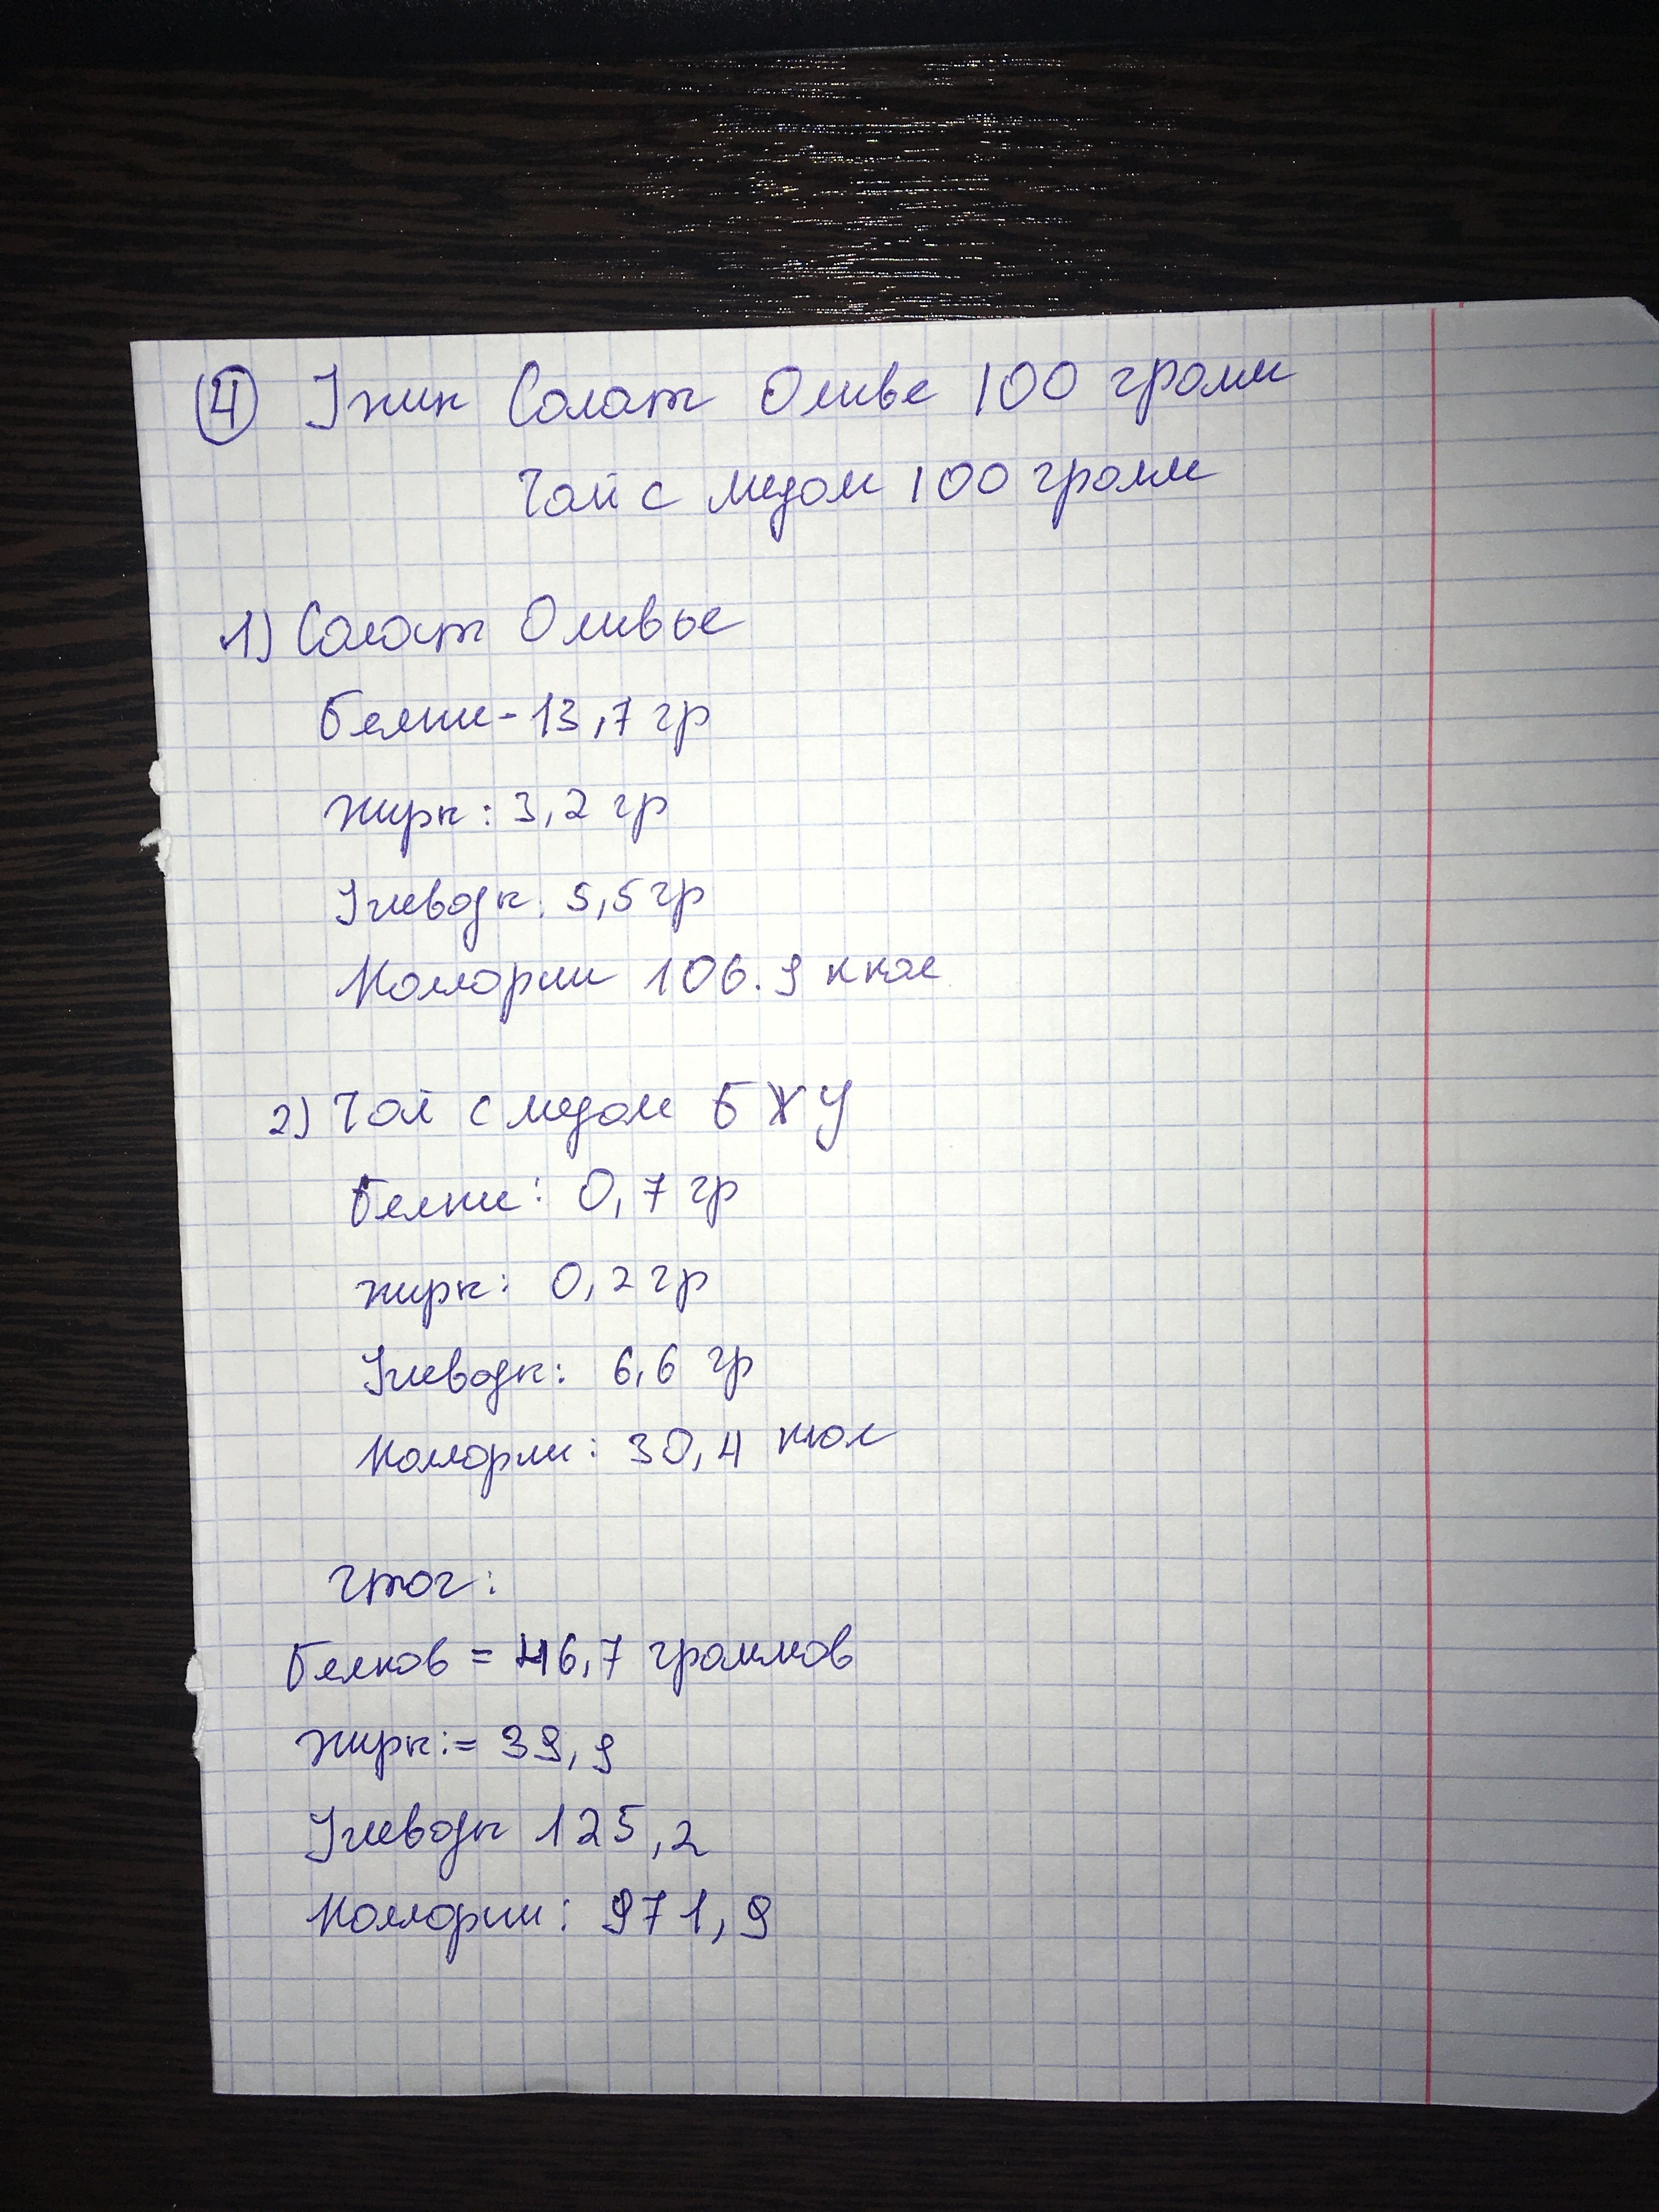 ④ Ужин Салат Оливе 100 грамм
Чай с медом 100 грамм
1) Салат Оливье
Белки - 13,7 гр
Жиры: 3,2 гр
Углеводы: 5,5 гр
Каллории 106.9 ккал
2) Чай с медом БЖУ
Белки: 0,7 гр
Жиры: 0,2 гр
Углеводы: 6,6 гр
Каллории: 30,4 ккал
Итог:
Белков = 46,7 граммов
Жиры:= 39,9
Углеводы 125,2
Каллории: 971,9